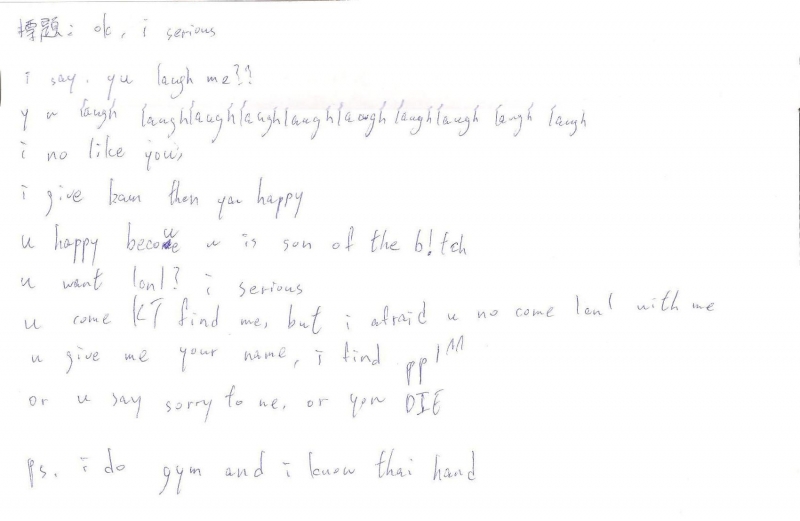 標題: ok, i serious
i say. yu laugh me??
y u laugh laughlaughlaughlaughlaughlaughlaugh laugh laugh
i no like you,
i give kam then you happy
u happy becoue u is son of the b!tch
u want 1on1? i serious
u come KT find me, but i afraid u no come 1on1 with me
u give me your name, i find ppl^^
or u say sorry to me, or you DIE
ps. i do gym and i know thai hand